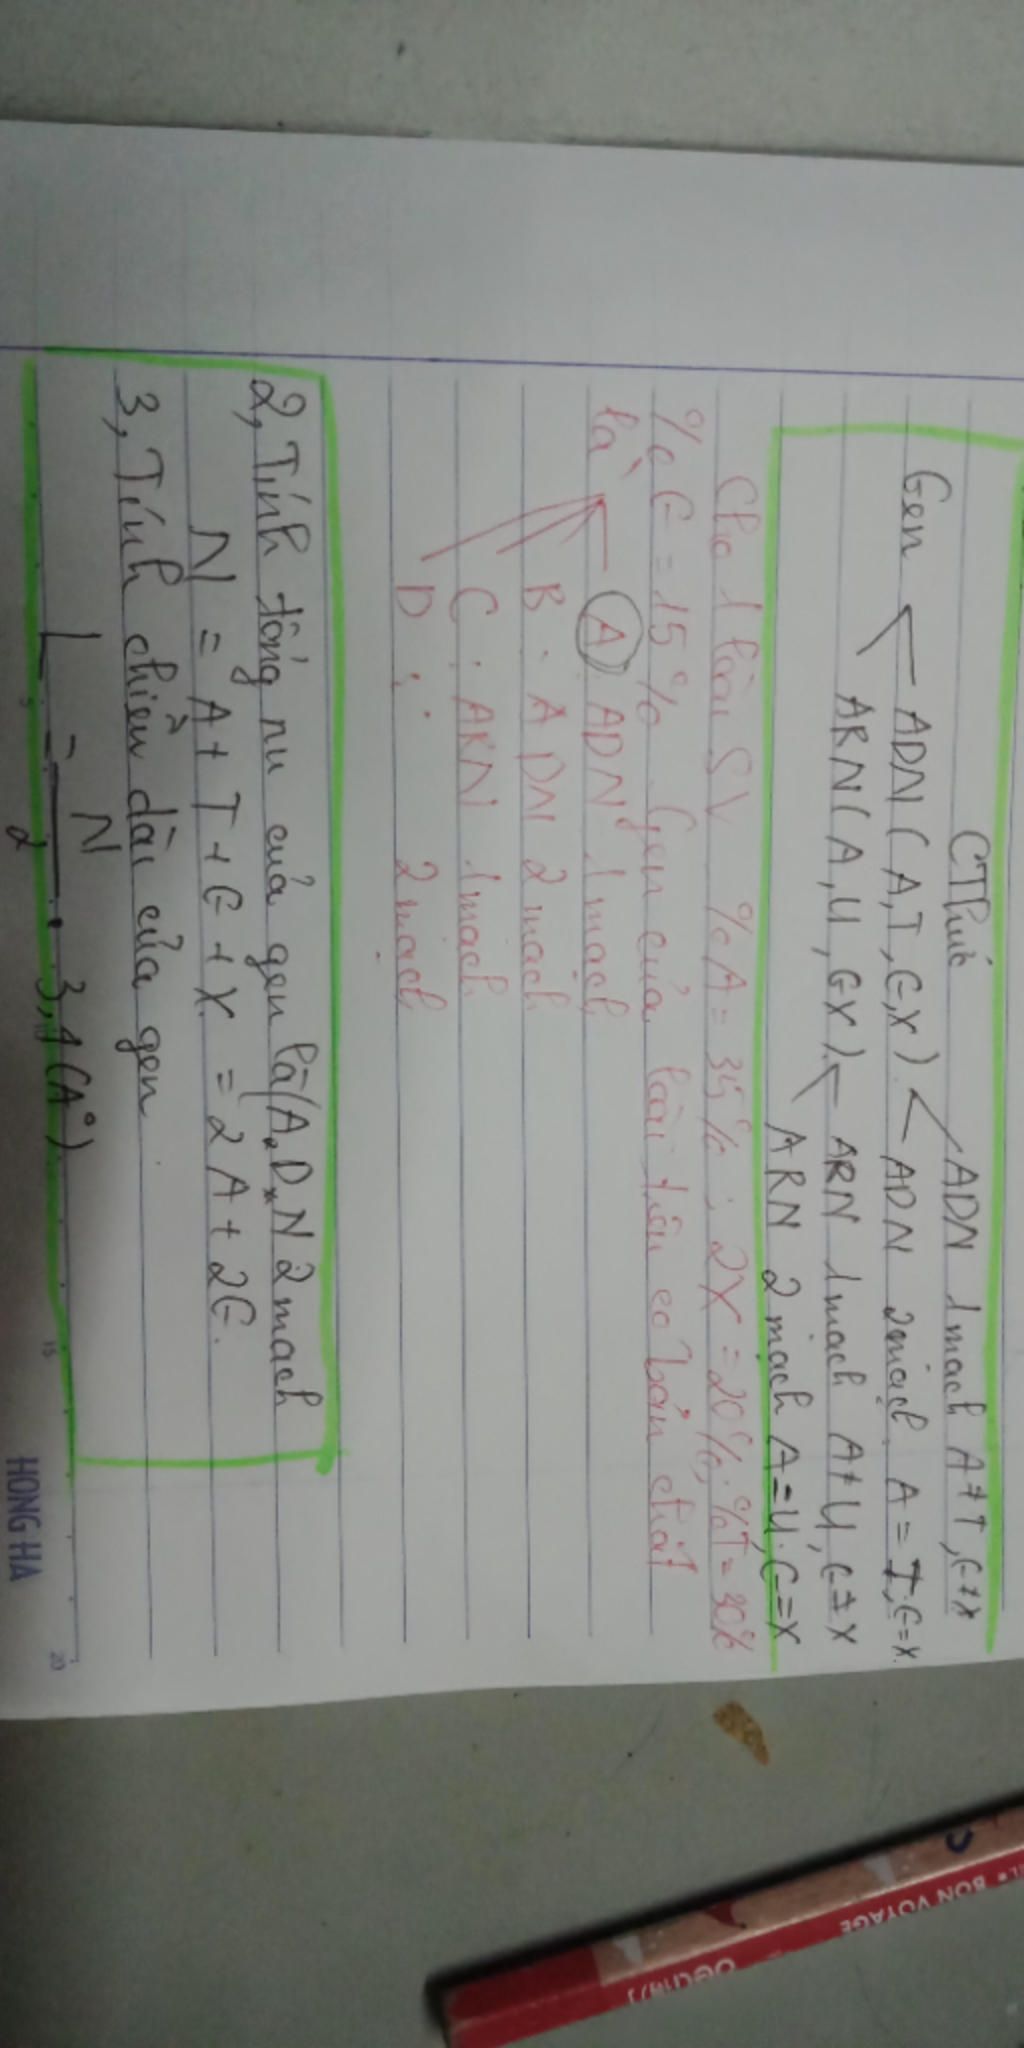 CTThức
ADN 1 mạch A ≠ T, G ≠ X
Gen ADN (A, T, G, X) ADN 2 mạch A = T, G = X.
ARN (A, U, G X) ARN 1 mạch A ≠ U, G ≠ X
ARN 2 mạch A = U, G = X
Cho 1 loài SV %A = 35% ; 2X = 20%; %T = 30%
%G = 15% Gen của loài trên có bản chất
là A. ADN 1 mạch
B. ADN 2 mạch
C. ARN 1 mạch
D : 2 mạch
2, Tính tổng nu của gen là (A.D.N 2 mạch
N = A + T + G + X = 2A + 2G.
3, Tính chiều dài của gen
L = N/2 . 3,4 (A°)
15
20
HONG HA
BON VOYAGE